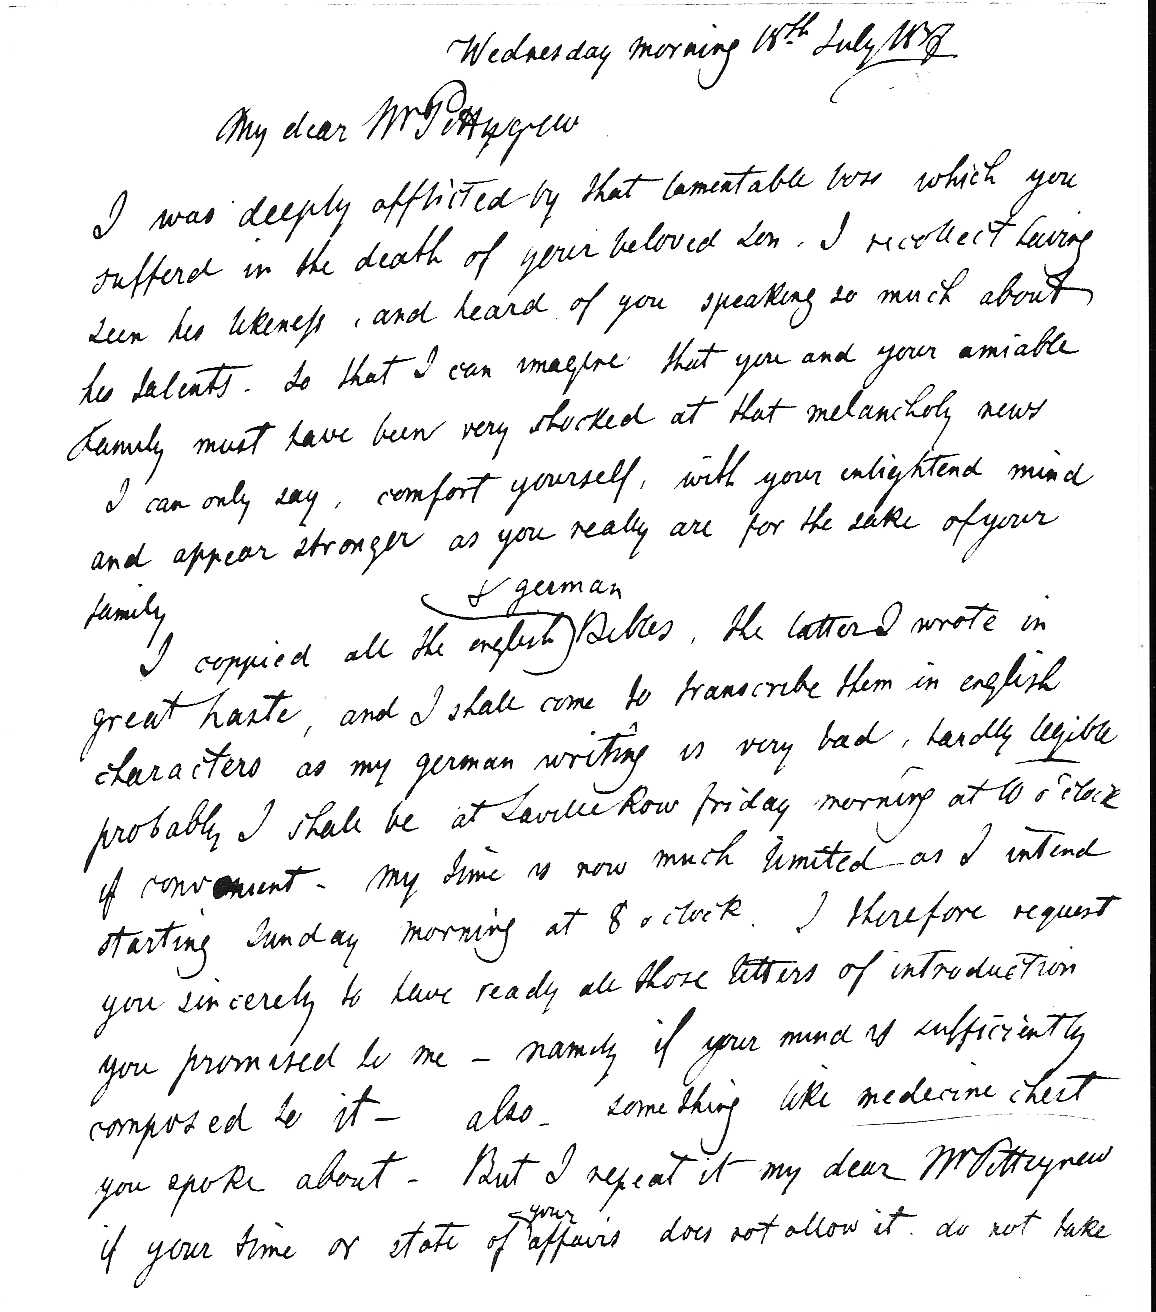 Wednesday morning 18th July 1837
My dear Mr Pettygrew
I was deeply afflicted by that lamentable loss which you
sufferd in the death of your beloved son. I recollect having
seen his likeness, and heard of you speaking so much about
his talents. So that I can imagine that you and your amiable
family must have been very shocked at that melancholy news
I can only say, comfort yourself, with your enlightend mind
and appear stronger as you really are for the sake of your
family
& german
I coppied all the english Bibles, the latter I wrote in
great haste, and I shall come to transcribe them in english
characters as my german writing is very bad, hardly legible
probably I shall be at Saville Row friday morning at 10 o'clock
if convenient - My time is now much limited as I intend
starting Sunday morning at 8 o clock. I therefore request
you sincerely to have ready all those letters of introduction
you promised to me - namely if your mind is sufficiently
composed to it - also - something like medecine chest
you spoke about - But I repeat it my dear Mr Pittegrew
your
if your time or state of affairs does not allow it. do not take